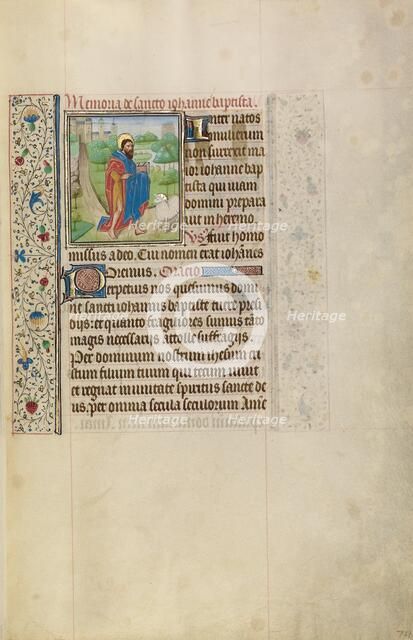 Memoria de sancto iohanne baptista.
Inter natos
mulierum
non surrexit ma
ior iohanne bap
tista qui uiam
domini prepara
uit in heremo.
Vs fuit homo
missus a deo. Cui nomen erat iohānes
Oremus. Oracio
Perpetuis nos quesumus domi
ne sancti iohannis baptiste tuere presi
dijs: et quanto fragiliores sumus tāto
magis necessarijs attolle suffragijs.
Per dominum nostrum ihesum cri
stum filium tuum qui tecum uiuit
et regnat in unitate spiritus sancte de
us. per omnia secula seculorum Amē
Heritage
Images
Heritage
Images
Heritage
Images
Heritage
Heritage